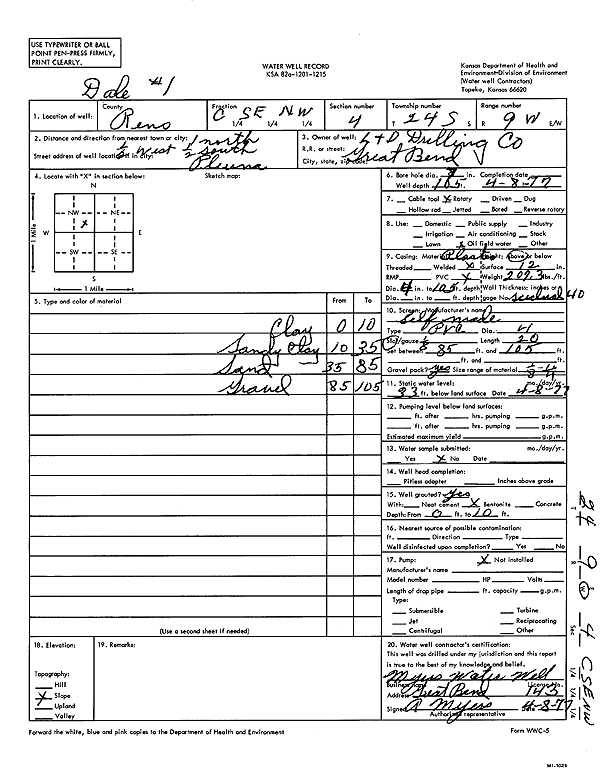 USE TYPEWRITER OR BALL
POINT PEN-PRESS FIRMLY,
PRINT CLEARLY.
WATER WELL RECORD
KSA 82a-1201-1215
Kansas Department of Health and
Environment-Division of Environment
(Water well Contractors)
Topeka, Kansas 66620
Dale #1
1. Location of well: County Reno Fraction C 1/4 SE 1/4 NW 1/4 Section number 4 Township number T 24 S S Range number R 9 W E/W
2. Distance and direction from nearest town or city: 1 north
1/2 west 1/2 south
Street address of well location if in city: Plevna
3. Owner of well: L+D Drilling Co
R.R. or street:
City, state, zip code: Great Bend
4. Locate with "X" in section below: Sketch map:
N
NW NE
X
W E
SW SE
S
1 Mile
1 Mile
6. Bore hole dia. 8 in. Completion date
Well depth 105 ft. 4-8-77
7. Cable tool X Rotary Driven Dug
Hollow rod Jetted Bored Reverse rotary
8. Use: Domestic Public supply Industry
Irrigation Air conditioning Stock
Lawn X Oil field water Other
9. Casing: Material Plastic Height: Above or below
Threaded Welded X Surface 12 in.
RMP PVC X Weight 209.3 lbs./ft.
Dia. 4 in. to 105 ft. depth Wall Thickness: inches or
Dia. in. to ft. depth gage No. schedual 40
5. Type and color of material From To
Clay 0 10
Sandy Clay 10 35
Sand 35 85
Gravel 85 105
(Use a second sheet if needed)
10. Screen: Manufacturer's name
self made
Type PVC Dia. 4
Slot/gauze Length 20
Set between 85 ft. and 105 ft.
ft. and ft.
Gravel pack? yes Size range of material
11. Static water level: mo./day/yr.
33 ft. below land surface Date 4-8-77
12. Pumping level below land surfaces:
ft. after hrs. pumping g.p.m.
ft. after hrs. pumping g.p.m.
Estimated maximum yield g.p.m.
13. Water sample submitted: mo./day/yr.
Yes X No Date
14. Well head completion:
Pitless adapter Inches above grade
15. Well grouted? yes
With: Neat cement X Bentonite Concrete
Depth: From 0 ft. to 10 ft.
16. Nearest source of possible contamination:
ft. Direction Type
Well disinfected upon completion? Yes No
17. Pump: X Not installed
Manufacturer's name
Model number HP Volts
Length of drop pipe ft. capacity g.p.m.
Type:
Submersible Turbine
Jet Reciprocating
Centrifugal Other
18. Elevation:
Topography:
Hill
X Slope
Upland
Valley
19. Remarks:
20. Water well contractor's certification:
This well was drilled under my jurisdiction and this report
is true to the best of my knowledge and belief.
Myers Water Well
Business name License No.
Address Great Bend 143
Signed R Myers Date 4-8-77
Authorized representative
Forward the white, blue and pink copies to the Department of Health and Environment
Form WWC-5
T 24 R 9 W Sec 4 CSENW
1/4 1/4 1/4